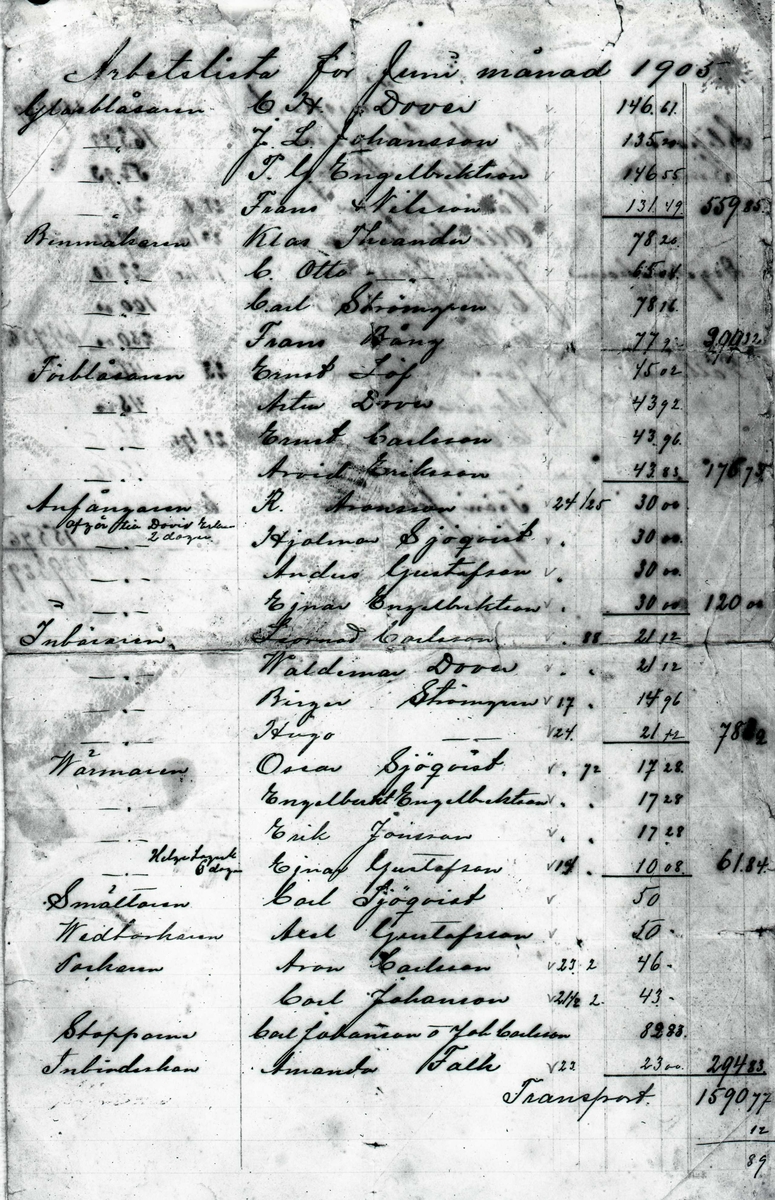 Arbetslista för Juni månad 1905.
Glasblåsaren C H Dover 146.61.
—"— J. L. Johansson 135.20
—"— P. G. Engelbrektson 146 55
—"— Frans Nilsson 131 49 559 85
Benmakaren Klas Theander 78 20
—"— C. Otto —"— 65 04
—"— Carl Strömgren 78 16
—"— Frans Bång 77 92 299 32
Förblåsaren Ernst Löf 45 02
—"— Artur Dover 43 92
—"— Ernst Carlsson 43 96
—"— Arvid Eriksson 43 83 176 73
Anfångaren R. Aronsson v 24/25 30 00
2 dagar Hjalmar Sjöqvist v " 30 00
—"— Anders Gustafson v " 30 00
—"— Ejnar Engelbrektson v " 30 00 120 00
Inbäraren Carlsson v " 88 21 12
—"— Waldemar Dover v " " 21 12
—"— Birger Strömgren v 17 " 14 96
—"— Hugo —"— v 24 " 21 12 78
Wärmaren Oscar Sjöqvist v " 72 17 28
" Engelbrekt Engelbrektson v " " 17 28
—"— Erik Jönsson v " " 17 28
—"— 6 dagar Ejnar Gustafson v 14 " 10 08 61.84
Smältaren Carl Sjöqvist v 50
Wedtorkaren Axel Gustafsson v 50 -
Torkaren Aron Carlsson v 23 2 46 -
Carl Johanson v 21½ 2 43 -
Stopparne Carl Johanson o Joh Carlsson 82 83.
Inbinderskan Amanda Falk v 23 23 00 294 83
Transport. 1590 77
12
89